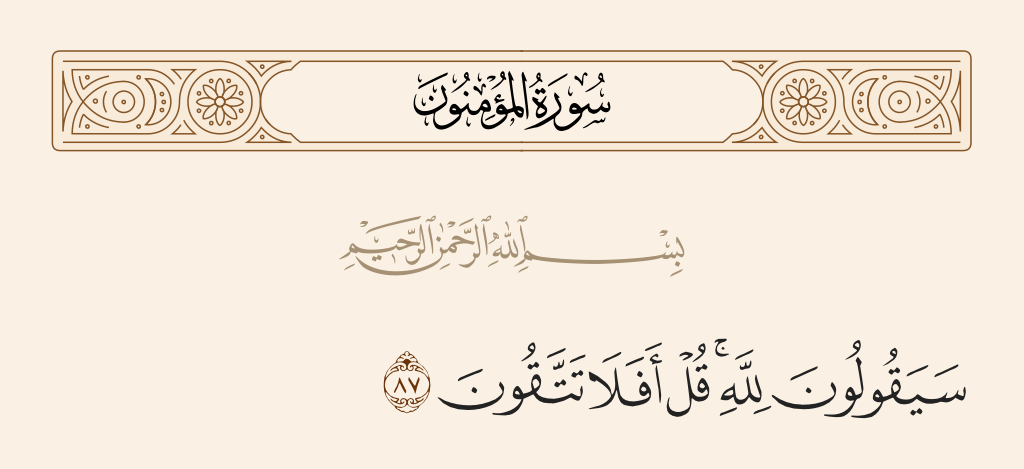 سُورَةُ الْمُؤْمِنُونَ
بِسْمِ ٱللَّهِ ٱلرَّحْمَٰنِ ٱلرَّحِيمِ
سَيَقُولُونَ لِلَّهِ ۚ قُلْ أَفَلَا تَتَّقُونَ ٨٧